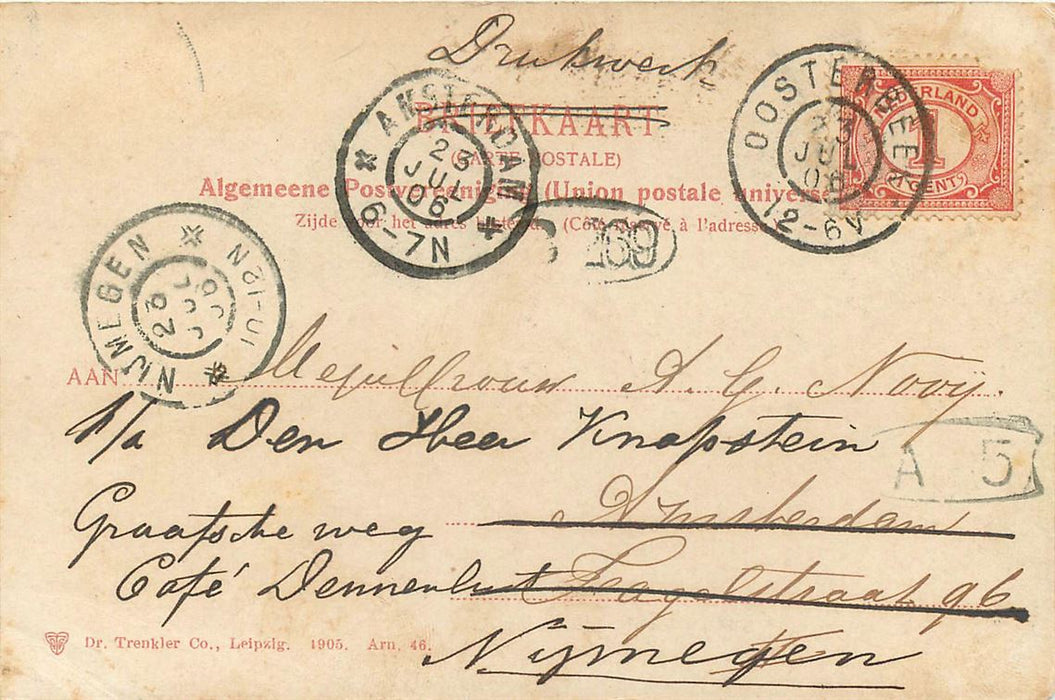 Drukwerk
BRIEFKAART
(CARTE POSTALE)
Algemeene Postvereeniging (Union postale universelle)
Zijde voor het adres bestemd. (Côté réservé à l'adresse)
AMSTERDAM
23
JUL
06
6-7N
OOSTERBEEK
23
JUL
06
12-6V
NEDERLAND
1
1 CENT
NIJMEGEN
23
JUL
06
10-12N
AAN Mejuffrouw A. G. Nooij.
p/a Den Heer Knapstein
A 5
Graafsche weg Amsterdam
Café Dennenlust straat 96
Nijmegen
Dr. Trenkler Co., Leipzig. 1905. Arn. 46.